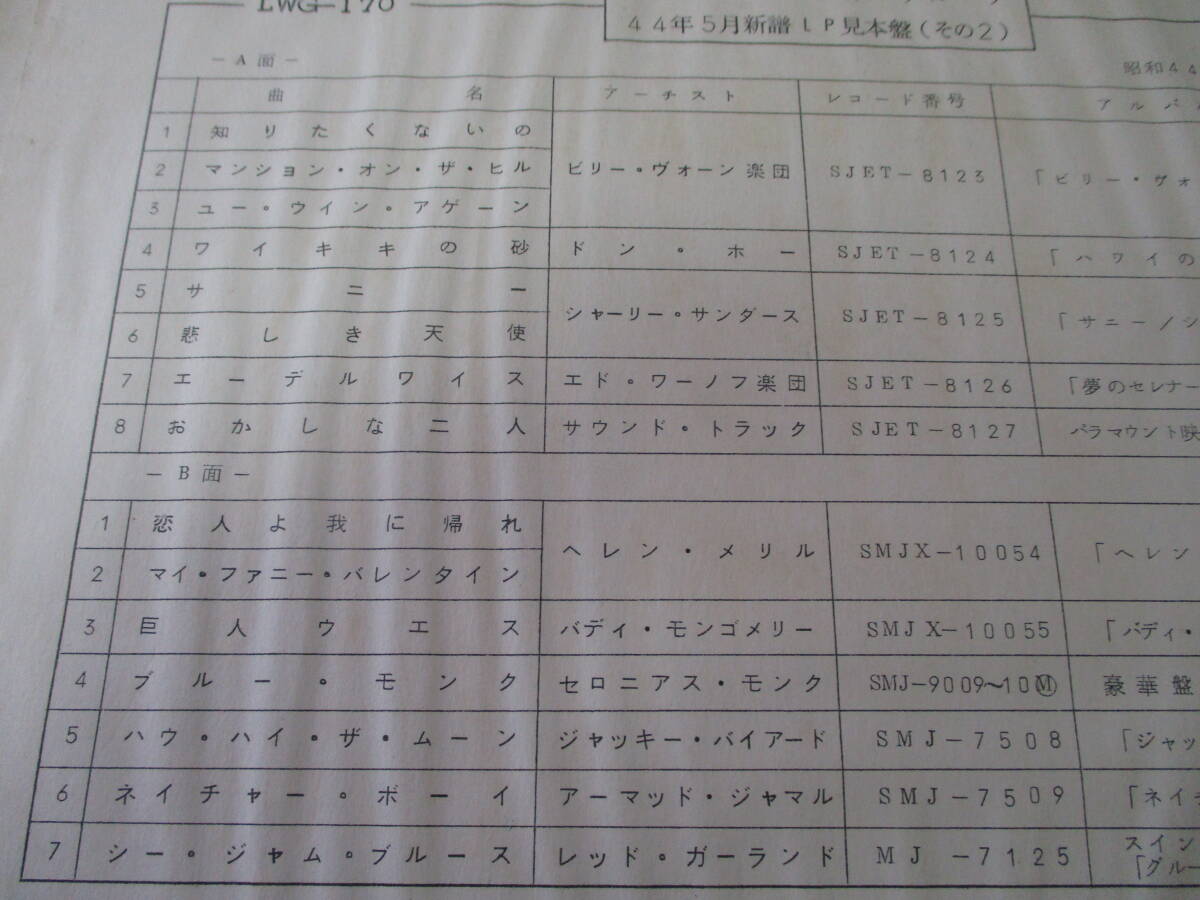 LWG-170
44年5月新譜LP見本盤(その2)
－A面－
昭和44
曲名 アーチスト レコード番号 アルバ
1 知りたくないの
2 マンション・オン・ザ・ヒル ビリー・ヴォーン楽団 SJET-8123 「ビリー・ヴォ
3 ユー・ウイン・アゲーン
4 ワイキキの砂 ドン・ホー SJET-8124 「ハワイの
5 サニー
シャーリー・サンダース SJET-8125 「サニー/シ
6 悲しき天使
7 エーデルワイス エド・ワーノフ楽団 SJET-8126 「夢のセレナー
8 おかしな二人 サウンド・トラック SJET-8127 パラマウント映
－B面－
1 恋人よ我に帰れ
ヘレン・メリル SMJX-10054 「ヘレン
2 マイ・ファニー・バレンタイン
3 巨人ウエス バディ・モンゴメリー SMJX-10055 「バディ・
4 ブルー・モンク セロニアス・モンク SMJ-9009~10Ⓜ 豪華盤
5 ハウ・ハイ・ザ・ムーン ジャッキー・バイアード SMJ-7508 「ジャッ
6 ネイチャー・ボーイ アーマッド・ジャマル SMJ-7509 「ネイチ
7 シー・ジャム・ブルース レッド・ガーランド MJ-7125 スイン
「グルー